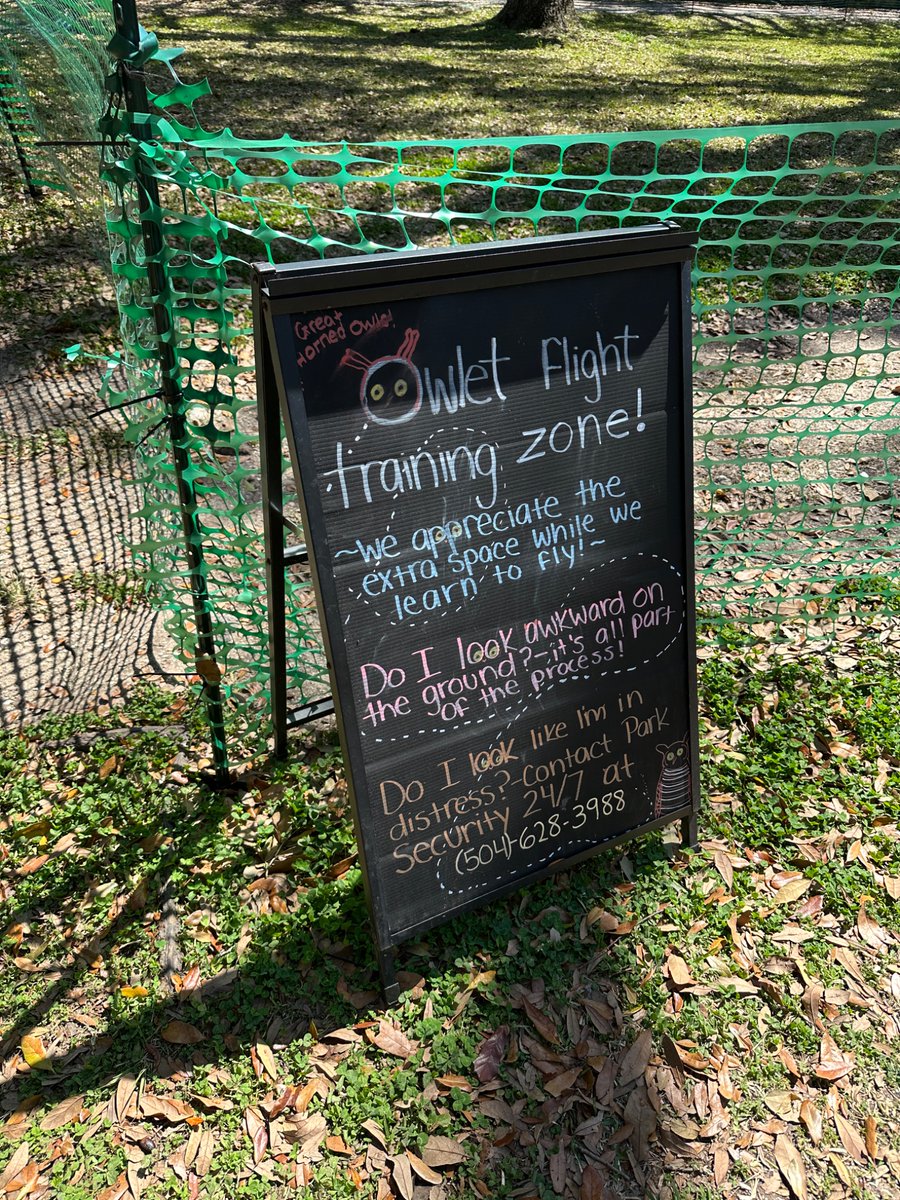 Great
Horned Owls!
Owlet Flight
training zone!
~We appreciate the
extra space while we
learn to fly!~
Do I look awkward on
the ground?-it's all part
of the process!
Do I look like I'm in
distress?-Contact Park
Security 24/7 at
(504)-628-3988